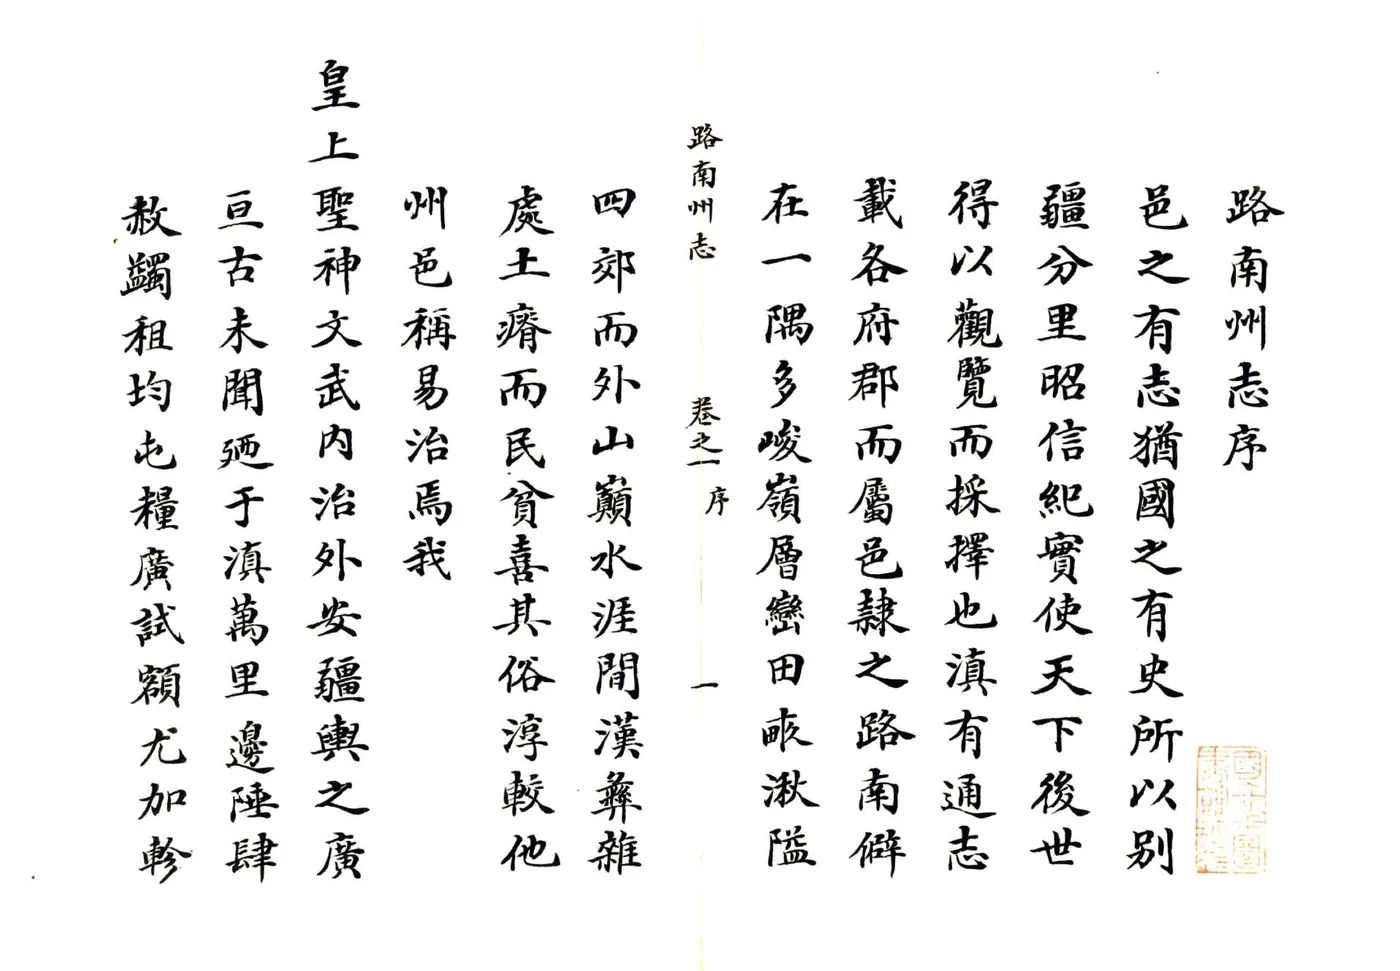 路南州志序
邑之有志猶國之有史所以別
疆分里昭信紀實使天下後世
得以觀覽而採擇也滇有通志
載各府郡而屬邑隸之路南僻
在一隅多峻嶺層巒田畝湫隘
路南州志 卷之一 序 一
四郊而外山巔水涯間漢彝雜
處土瘠而民貧喜其俗淳較他
州邑稱易治焉我
皇上聖神文武內治外安疆輿之廣
亘古未聞廼于滇萬里邊陲肆
赦蠲租均屯糧廣試額尤加軫